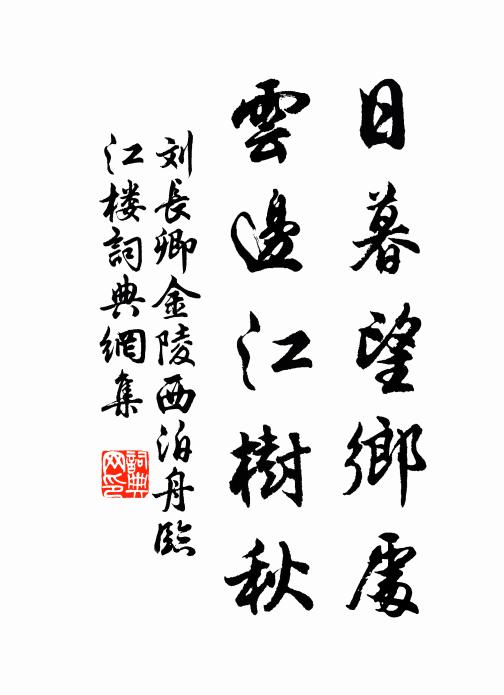 日暮望鄉處
雲邊江樹秋
刘長卿金陵西泊舟臨
江楼詞典網集
詞典
网印